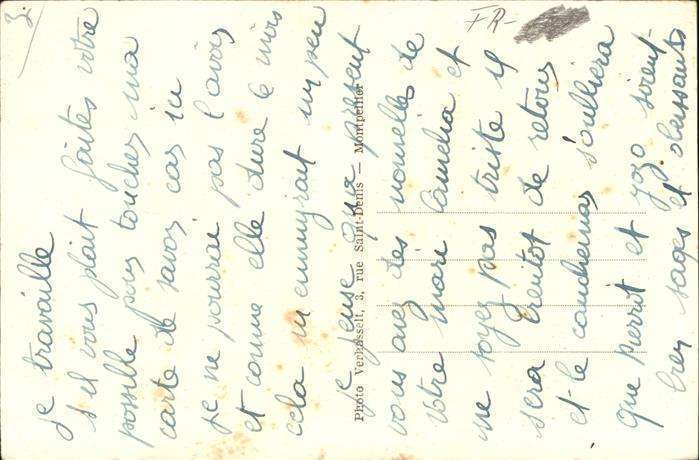 3.
FR-
je travaille
s il vous plait faites votre
possible pour toucher ma
carte de savoi car ici
je ne pourrai pas l avoir
et comme elle dure 6 mois
cela m ennuyrait un peu
je pense que present
Photo Verhasselt, 3, rue Saint-Denis — Montpellier
vous avez des nouvelle de
votre mari Camelia et
ne soyez pas triste il
sera bientot de retour
et le cauchemar s'oulliera
que pierrot et zozo soient
bien sages et obeissants